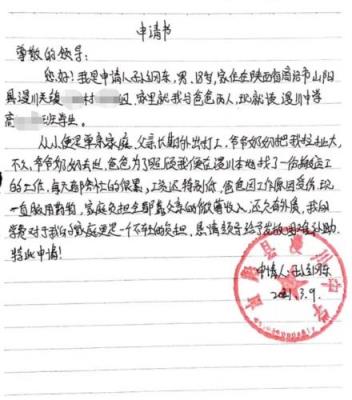 申请书
尊敬的领导：
您好！我是申请人孙闪东，男，18岁，家住在陕西省商洛市山阳
县漫川关镇 村 组，家里就我与爸爸两人，现就读漫川中学
高 班学生。
从小便是单亲家庭，父亲长期外出打工，爷爷奶奶把我拉扯大，
不久，爷爷奶奶去世，爸爸为了照顾我便在漫川本地找了一份 工
的工作，每天都务忙的很累，工资还特别低，爸爸因工作原因受伤，现
一直服用药物，家庭负担全部靠父亲的微薄收入，还欠有外债，我的
学费对于我的家庭更是一个不轻的负担，恳请领导给予发放困难补助。
特此申请！
申请人：孙闪东
2021.3.9.
山阳县漫川中学